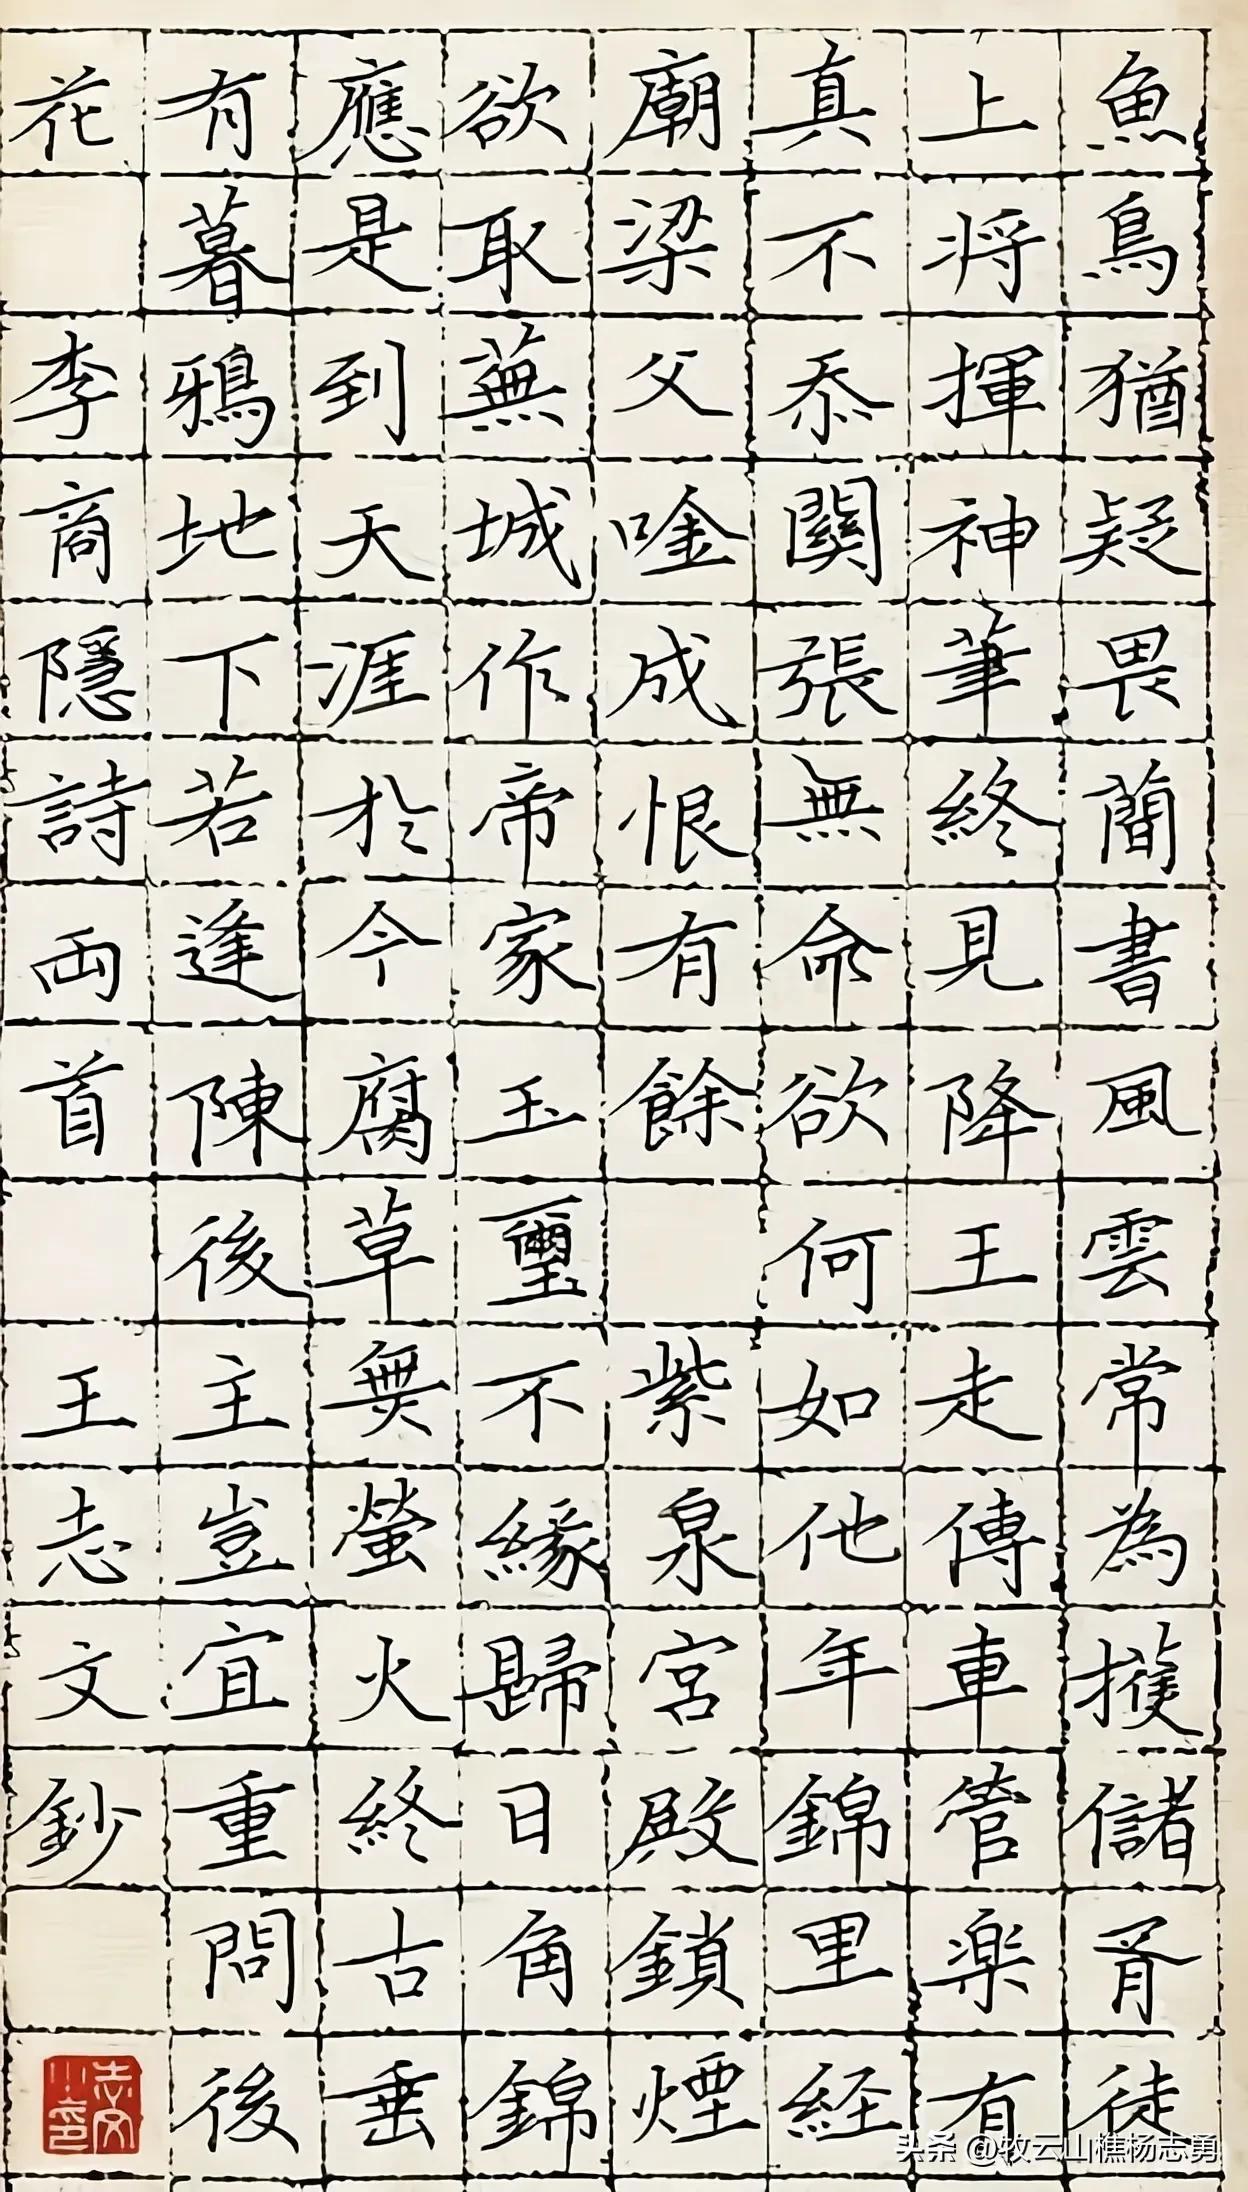 魚鳥猶疑畏簡書風雲常為擭儲胥徒
上将揮神筆終見降王走傳車管楽有
真不忝關張無命欲何如他年錦里経
廟梁父唫成恨有餘 紫泉宮殿鎖煙
欲取蕪城作帝家玉璽不緣歸日角錦
應是到天涯於今腐草無螢火終古垂
有暮鴉地下若逢陳後主豈宜重問後
花 李商隱詩兩首 王志文鈔
志文小印
头条 @牧云山樵杨志勇